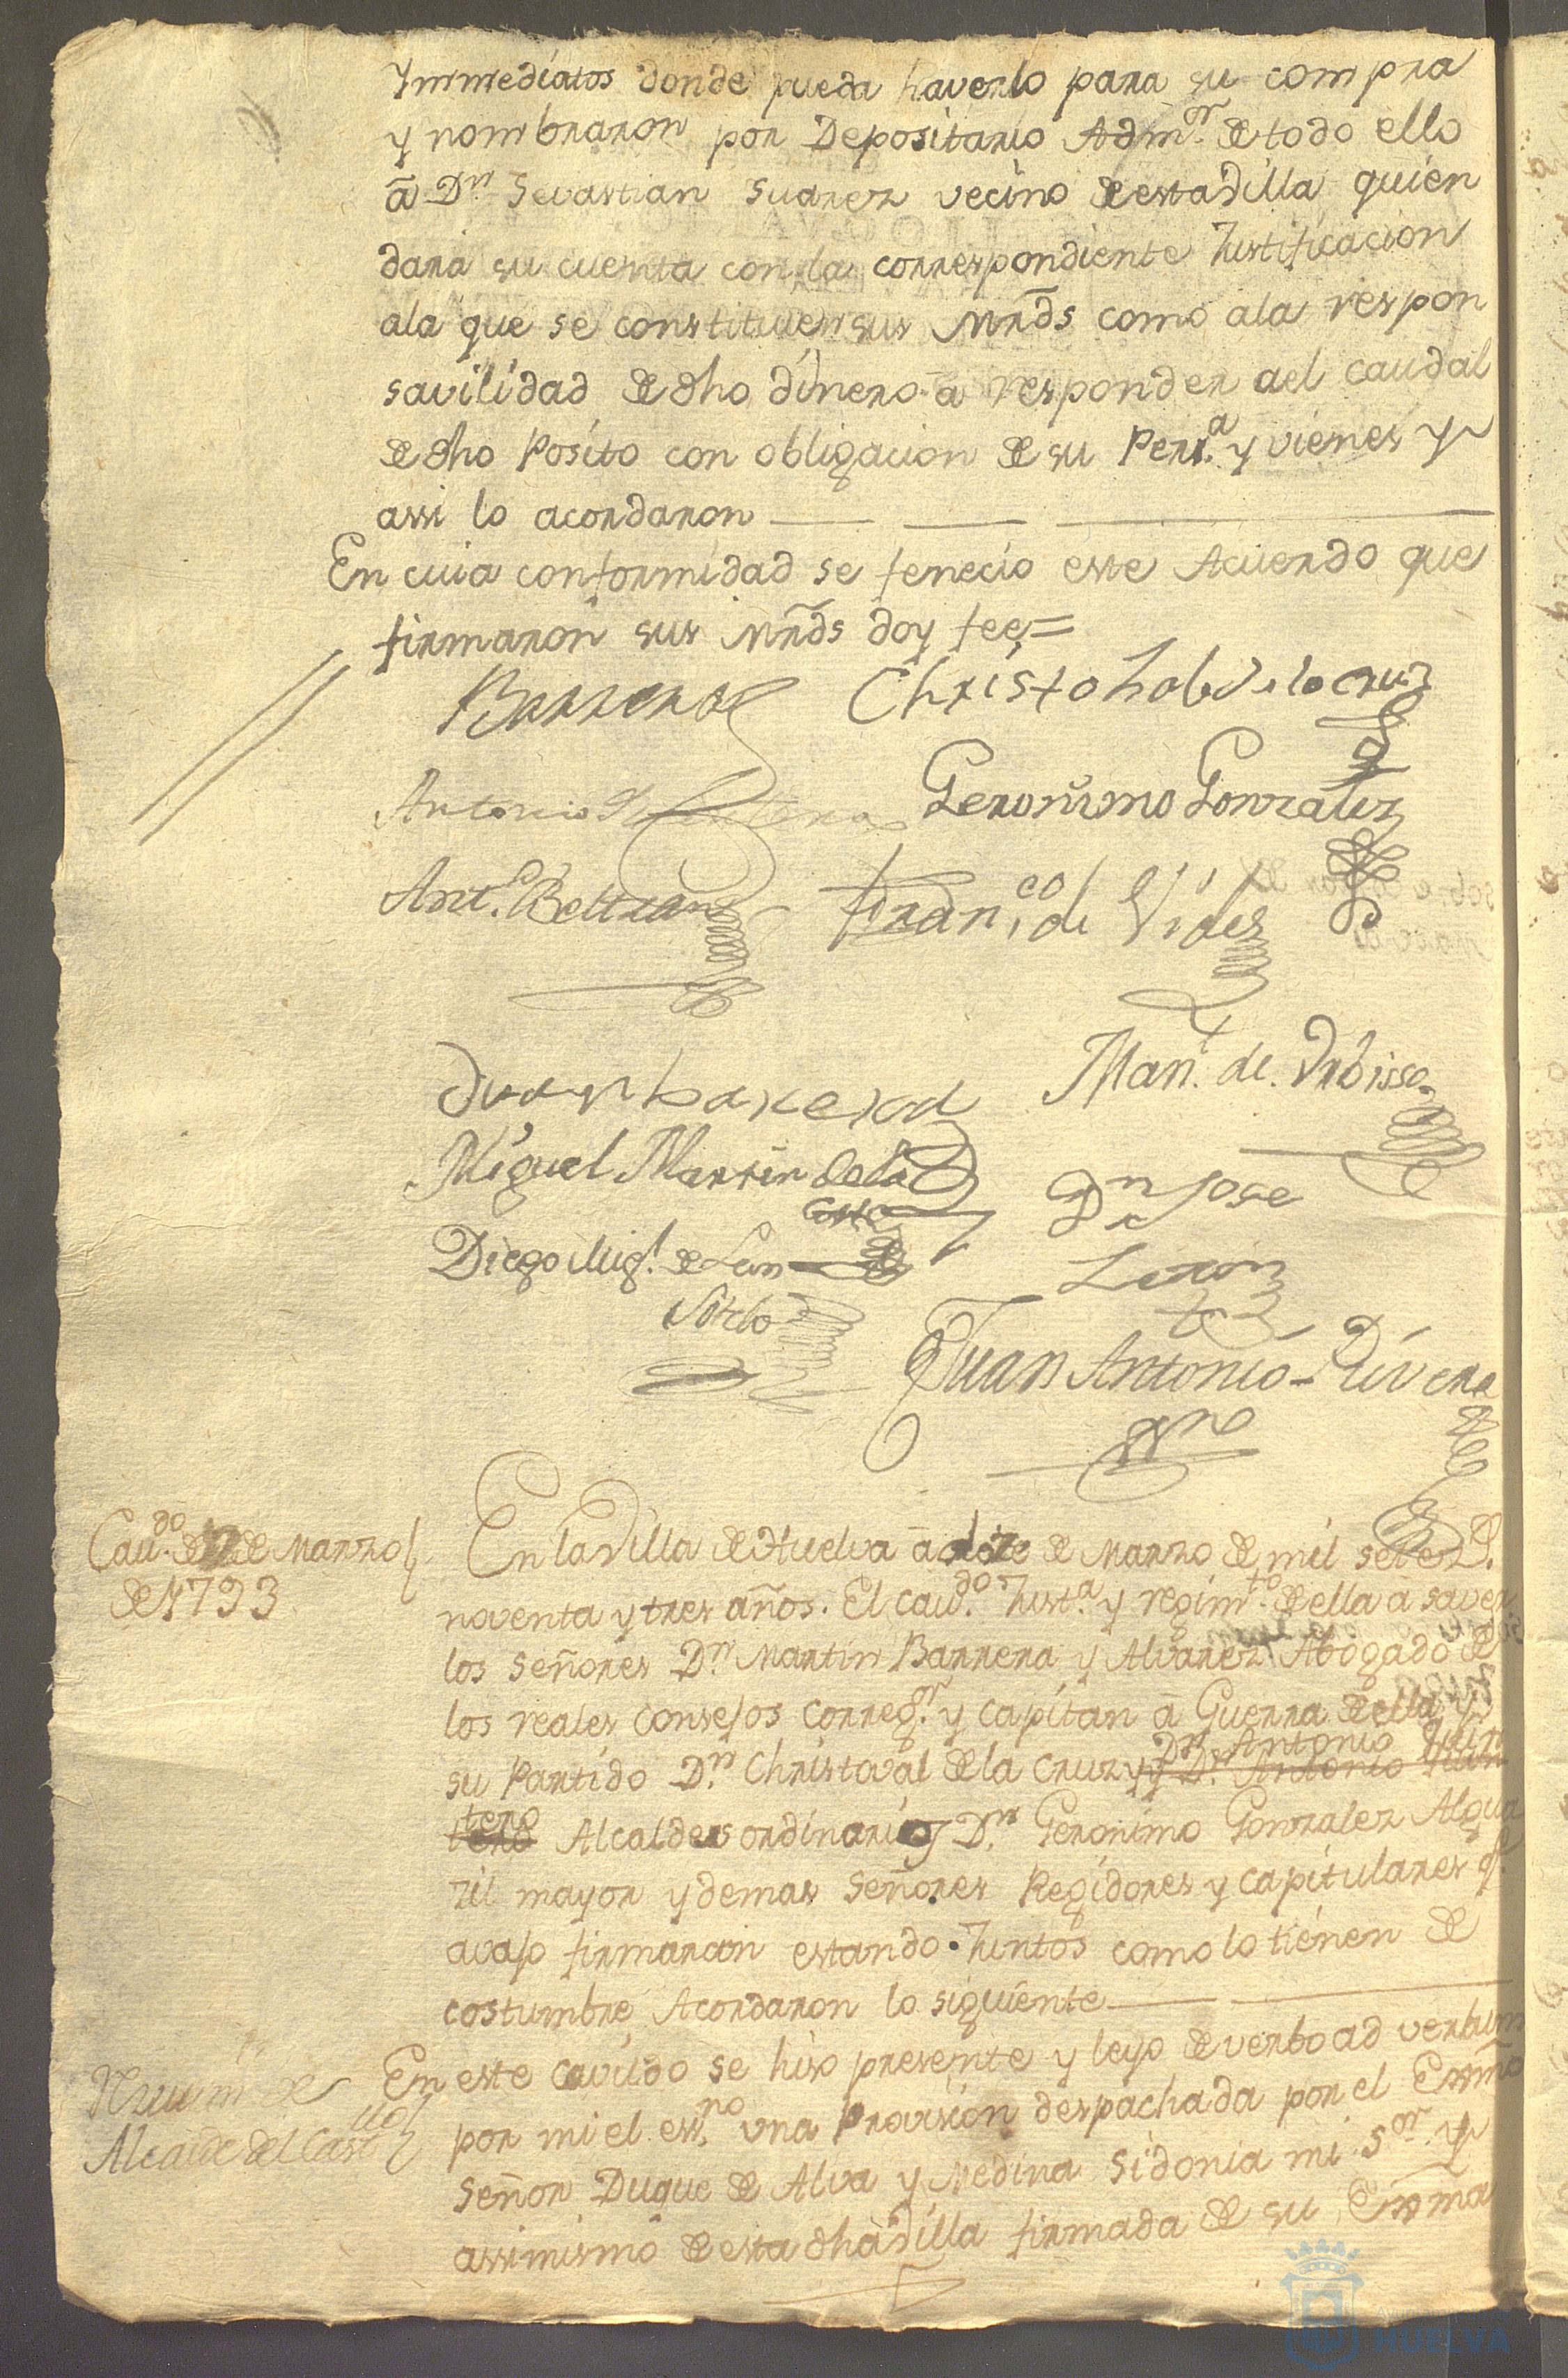 Ymmediatos donde pueda haverlo para su compra
y nombraron por Depositario Adm.or de todo ello
a Dn. Sevastian Suarez vecino de esta villa quien
dara su cuenta con la correspondiente Justificacion
ala que se constituien sus Mrds como ala respon
savilidad de dho dinero a responder ael caudal
de dho Posito con obligacion de su Pers.a y vienes y
assi lo acordaron
En cuia conformidad se fenecio este Acuerdo que
firmaron sus Mrds doy fee=
Barrera Christobal de la Cruz
Antonio Geronimo Gonzalez
Ant.o Beltran Fran.co de Vides
Juan barera Man.l de
Miguel Martin de la Dn Jose
Corte
Diego Mig.l de Leon Leon
Sotelo
Juan Antonio Rivera
Cav.do de 12 de Marzo
de 1793
En la Villa de Huelva a doze de Marzo de mil setez.s
noventa y tres años. El cav.do Just.a y regim.to de ella a saver
los señores Dn. Martin Barrera y Alvarez Abogado de
los reales consejos correg.or y capitan a Guerra de ella y
su Partido Dn. Christoval de la Cruz y Dn Antonio Quin
tero Alcaldes ordinarios Dn. Geronimo Gonzalez Algua
zil mayor y demas señores Regidores y capitulares q.e
avajo firmaran estando Juntos como lo tienen de
costumbre Acordaron lo siguiente
Alcaide del Cast.llo
En este cavildo se hiso presente y leyo de verbo ad verbum
por mi el ess.no una Provision despachada por el Exmo
Señor Duque de Alva y Medina Sidonia mi S.or y
assimismo de esta dha Villa firmada de su Exma
HUELVA